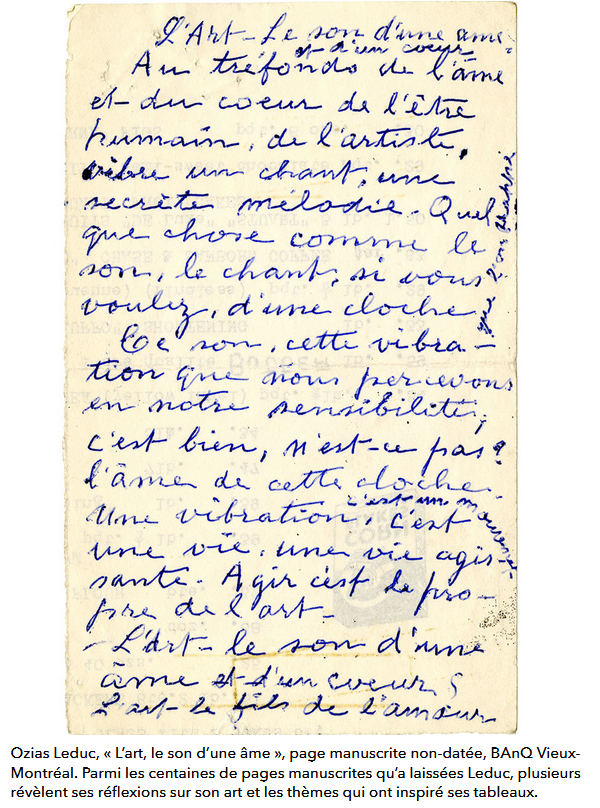 L'Art - Le son d'une âme -
et d'un coeur
Au tréfonds de l'âme
et du coeur de l'être
humain, de l'artiste,
vibre un chant, une
secrète mélodie. Quel
que chose comme le
son, le chant, si vous
voulez, d'une cloche
que l'on frappe
Ce son, cette vibra-
tion que nous percevons
en notre sensibilité,
c'est bien, n'est-ce pas?
l'âme de cette cloche.
Une vibration, c'est un mouvement
c'est
une vie, une vie agis-
sante. Agir c'est le pro-
pre de l'art -
- L'Art - le son d'une
âme et d'un coeur,
L'art - le fils de l'amour
Ozias Leduc, « L'art, le son d'une âme », page manuscrite non-datée, BAnQ Vieux-
Montréal. Parmi les centaines de pages manuscrites qu'a laissées Leduc, plusieurs
révèlent ses réflexions sur son art et les thèmes qui ont inspiré ses tableaux.